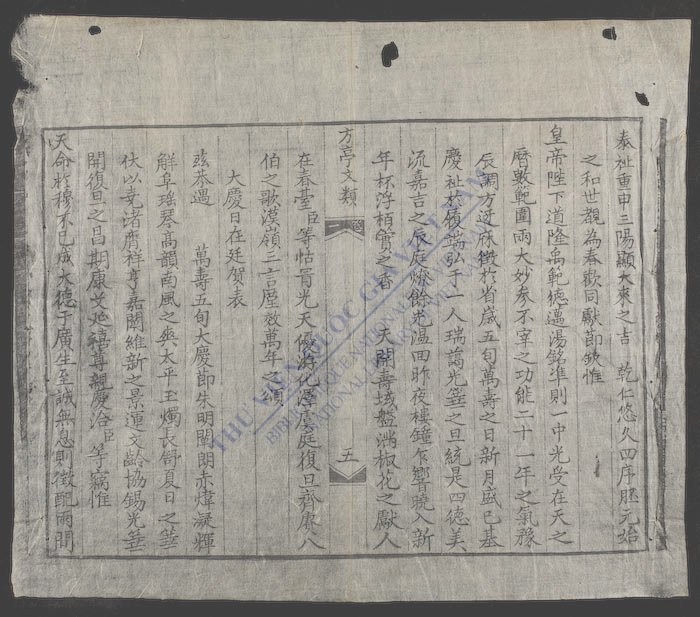 泰祉重申三陽顯大來之吉 乾仁悠久四序胚元始
之和世覩為春歡同獻節欽惟
皇帝陛下道隆禹範德邁湯銘準則一中光受在天之
曆數範圍兩大妙參不宰之功能二十一年之氣稼
辰閣方迓庥徵於首歲五旬萬壽之日新月盛已基
慶祉於履端弘于一人瑞藹光華之旦統是四德美
流嘉吉之辰庭燎餘光溫回昨夜樓鐘乍響曉入新
年杯浮栢實之香 天開壽域盤滿椒花之獻人
在春臺臣等怙冒光天優游化澤虞庭復旦齊賡八
伯之歌漠嶺三言歷效萬年之頌
大慶日在廷賀表
茲恭遇 萬壽五旬大慶節朱明闡朗赤煒凝輝
解阜瑤琴高韻南風之奏太平玉燭長舒夏日之華
伏以堯渚膺祥亨嘉闡維新之景運文齡協錫光華
開復旦之昌期康艾延禧尊親慶洽臣等竊惟
天命於穆不已成大德于廣生至誠無息則徵配兩間
方亭文類
五
THƯ VIỆN QUỐC GIA VIỆT NAM
BIBLIOTHEQUE NATIONALE DU VIETNAM
NATIONAL LIBRARY OF VIETNAM